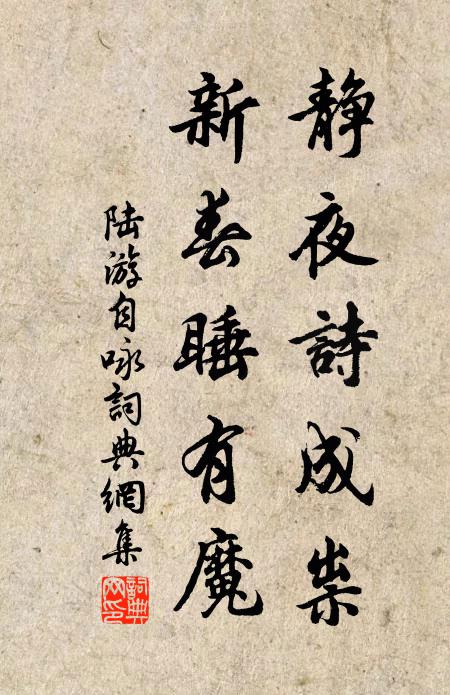 静夜詩成祟
新春睡有魔
陆游自咏詞典網集
詞典网印